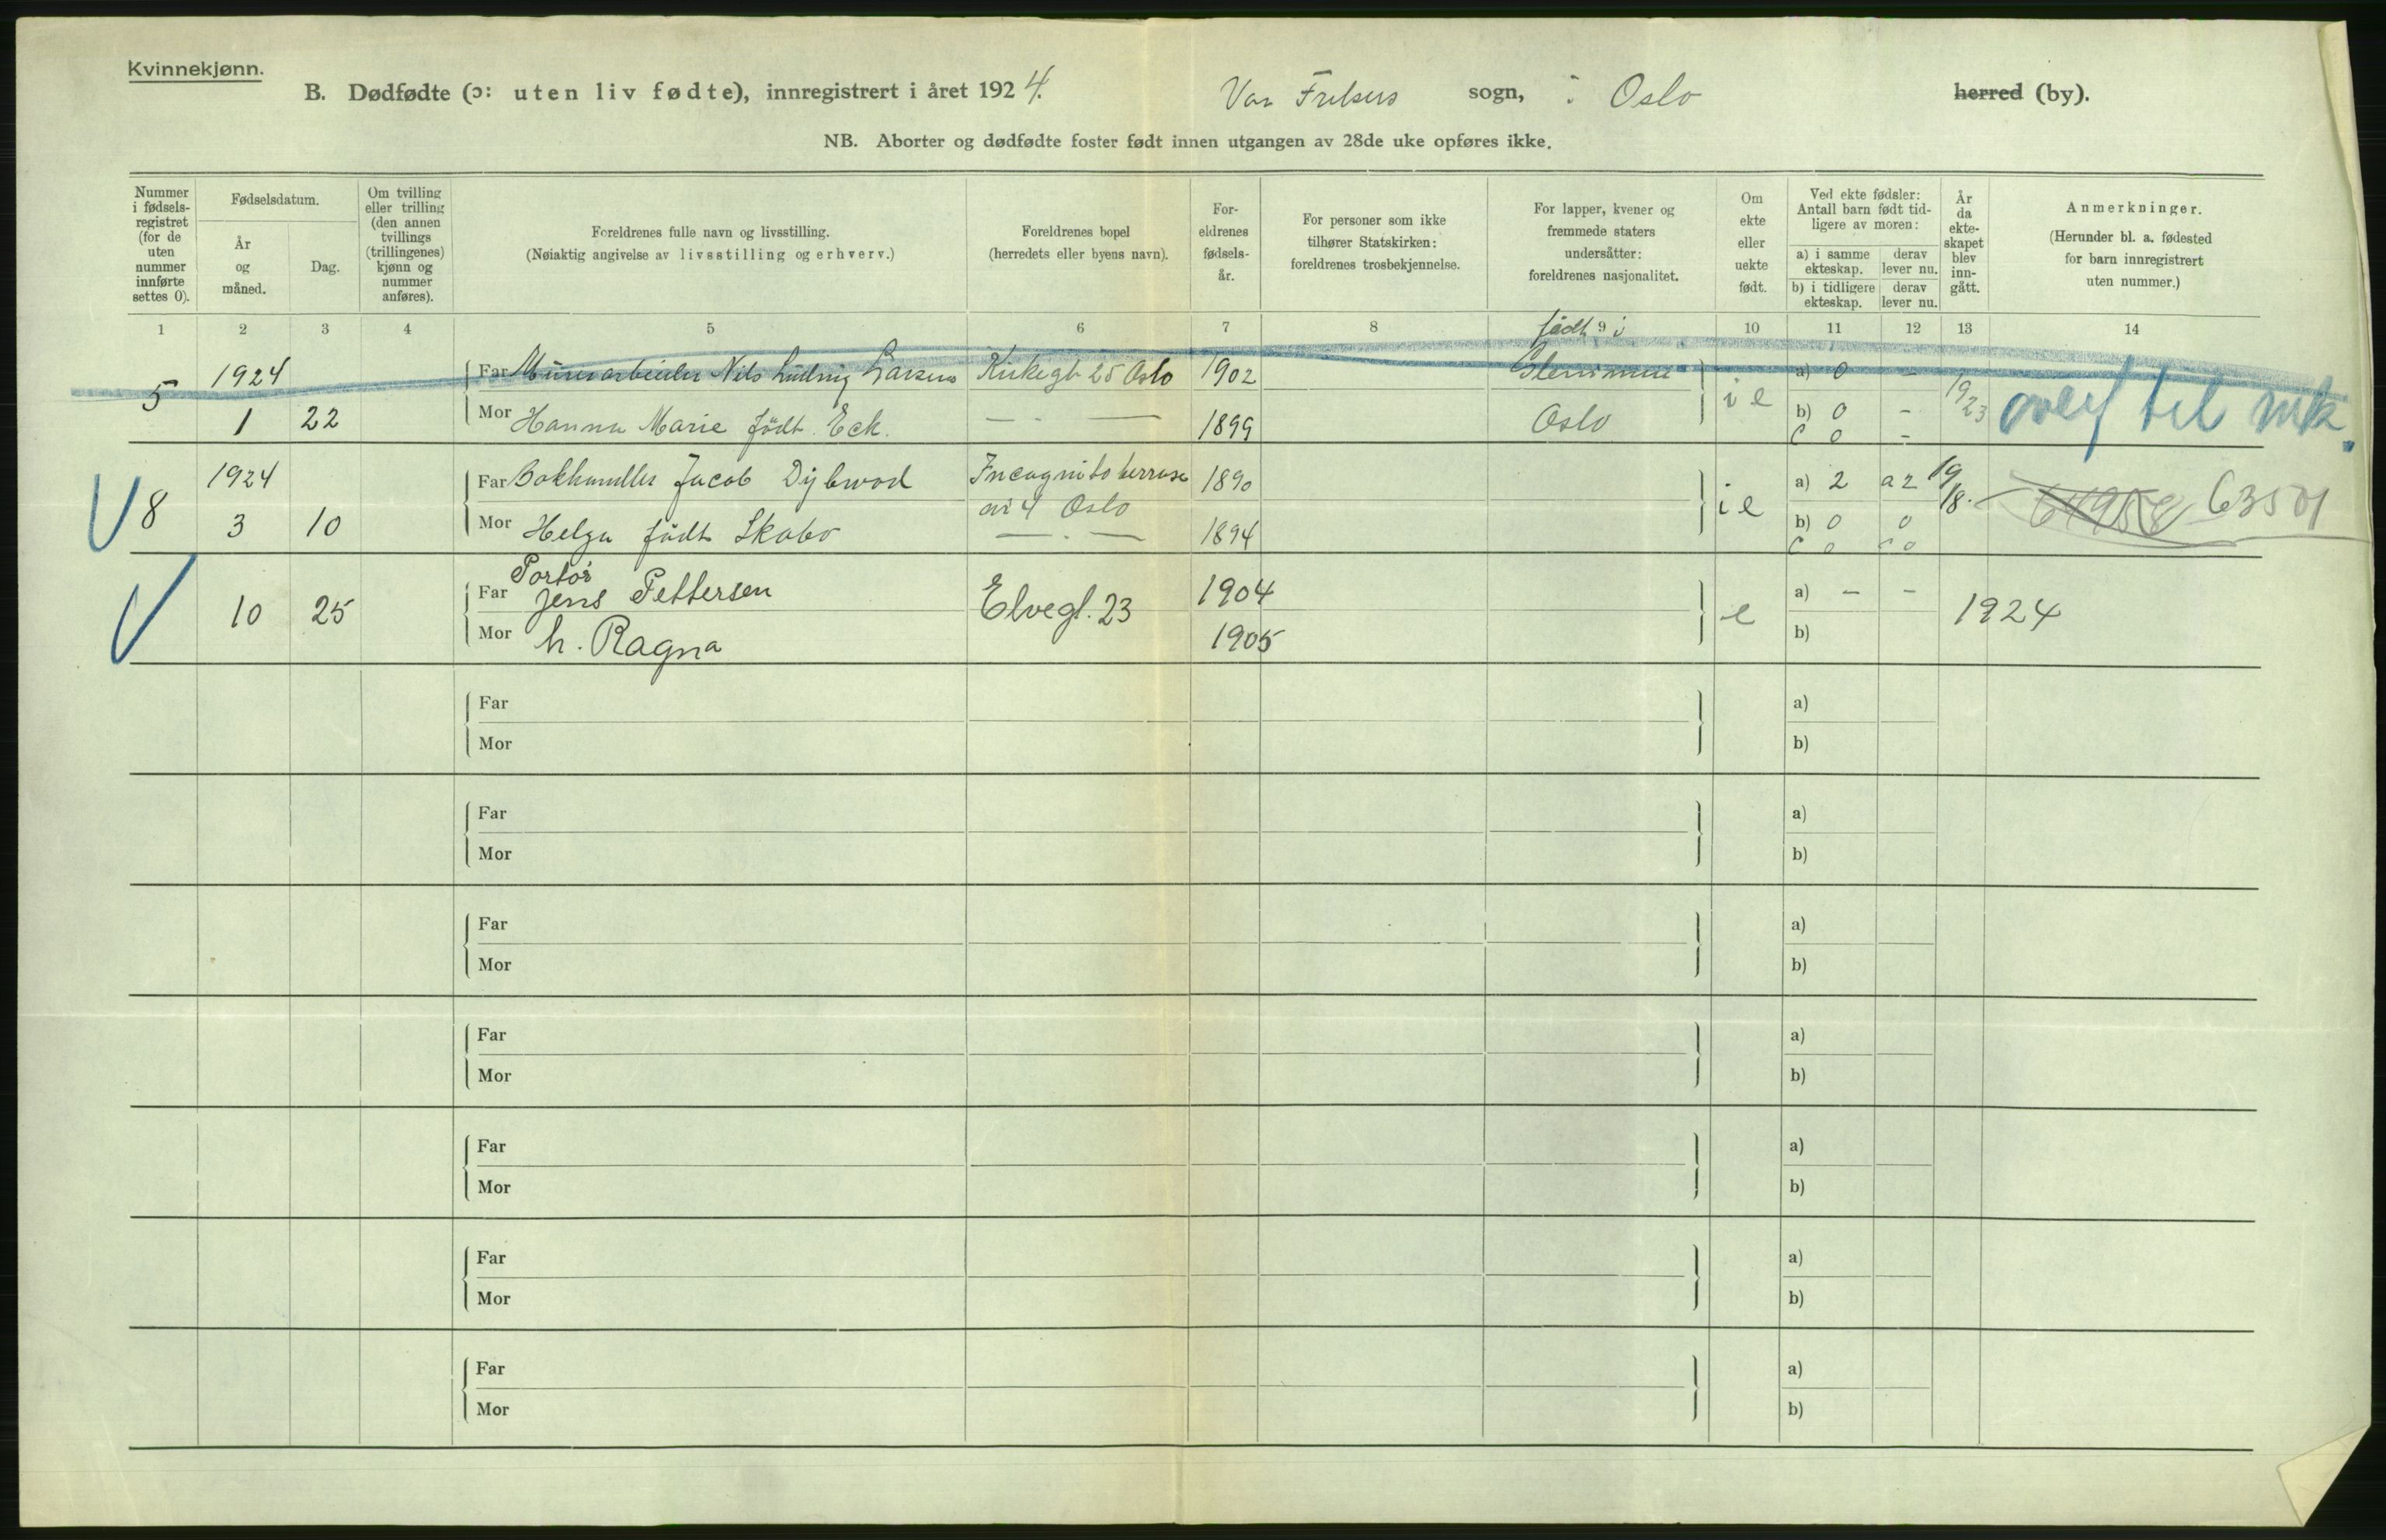 Kvinnekjønn.
B. Dødfødte (ɔ: uten liv fødte), innregistrert i året 1924. Vor Frelsers sogn, i Oslo herred (by).
NB. Aborter og dødfødte foster født innen utgangen av 28de uke opføres ikke.
Nummer i fødsels-registret (for de uten nummer innførte settes 0).
Fødselsdatum.
År og måned.
Dag.
Om tvilling eller trilling (den annen tvillings (trillingenes) kjønn og nummer anføres).
Foreldrenes fulle navn og livsstilling.
(Nøiaktig angivelse av livsstilling og erhverv.)
Foreldrenes bopel
(herredets eller byens navn).
For-eldrenes fødsels-år.
For personer som ikke tilhører Statskirken: foreldrenes trosbekjennelse.
For lapper, kvener og fremmede staters undersåtter: foreldrenes nasjonalitet.
Om ekte eller uekte født.
Ved ekte fødsler: Antall barn født tid-ligere av moren:
a) i samme ekteskap.
derav lever nu.
b) i tidligere ekteskap.
derav lever nu.
År da ekte-skapet blev inn-gått.
Anmerkninger.
(Herunder bl. a. fødested for barn innregistrert uten nummer.)
1 2 3 4 5 6 7 8 9 10 11 12 13 14
født i
5 1924 Far Murerarbeider Nils Ludvig Larsen Kirkegt 25 Oslo 1902 Glemminge ie a) 0 - 19/23 overf til mk.
1 22 Mor Hanna Marie født Eck. — — 1899 Oslo b) 0 -
c 0 -
8 1924 Far Bokhandler Jacob Dybwad Incognito terrasse 1890 ie a) 2 a 2 19/18. 63501
nr 4 Oslo
3 10 Mor Helga født Skabo — . — 1894 b) 0 0
c 0 c 0
Portør
10 25 Far Jens Pettersen Elvegt. 23 1904 e a) - - 1924
Mor h. Ragna 1905 b)
Far a)
Mor b)
Far a)
Mor b)
Far a)
Mor b)
Far a)
Mor b)
Far a)
Mor b)
Far a)
Mor b)
Far a)
Mor b)